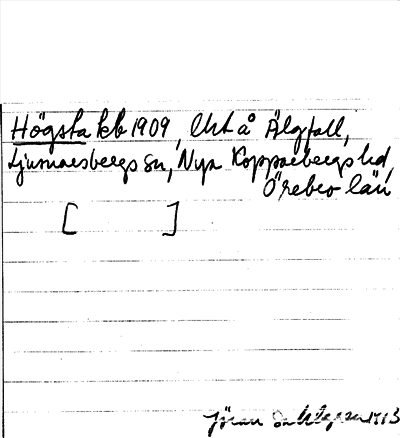 Högsta kb 1909, Urt å Älgfall,
Ljusnarsbergs sn, Nya Kopparbergs hd,
Örebro län
[ ]
Göran Dahlgren